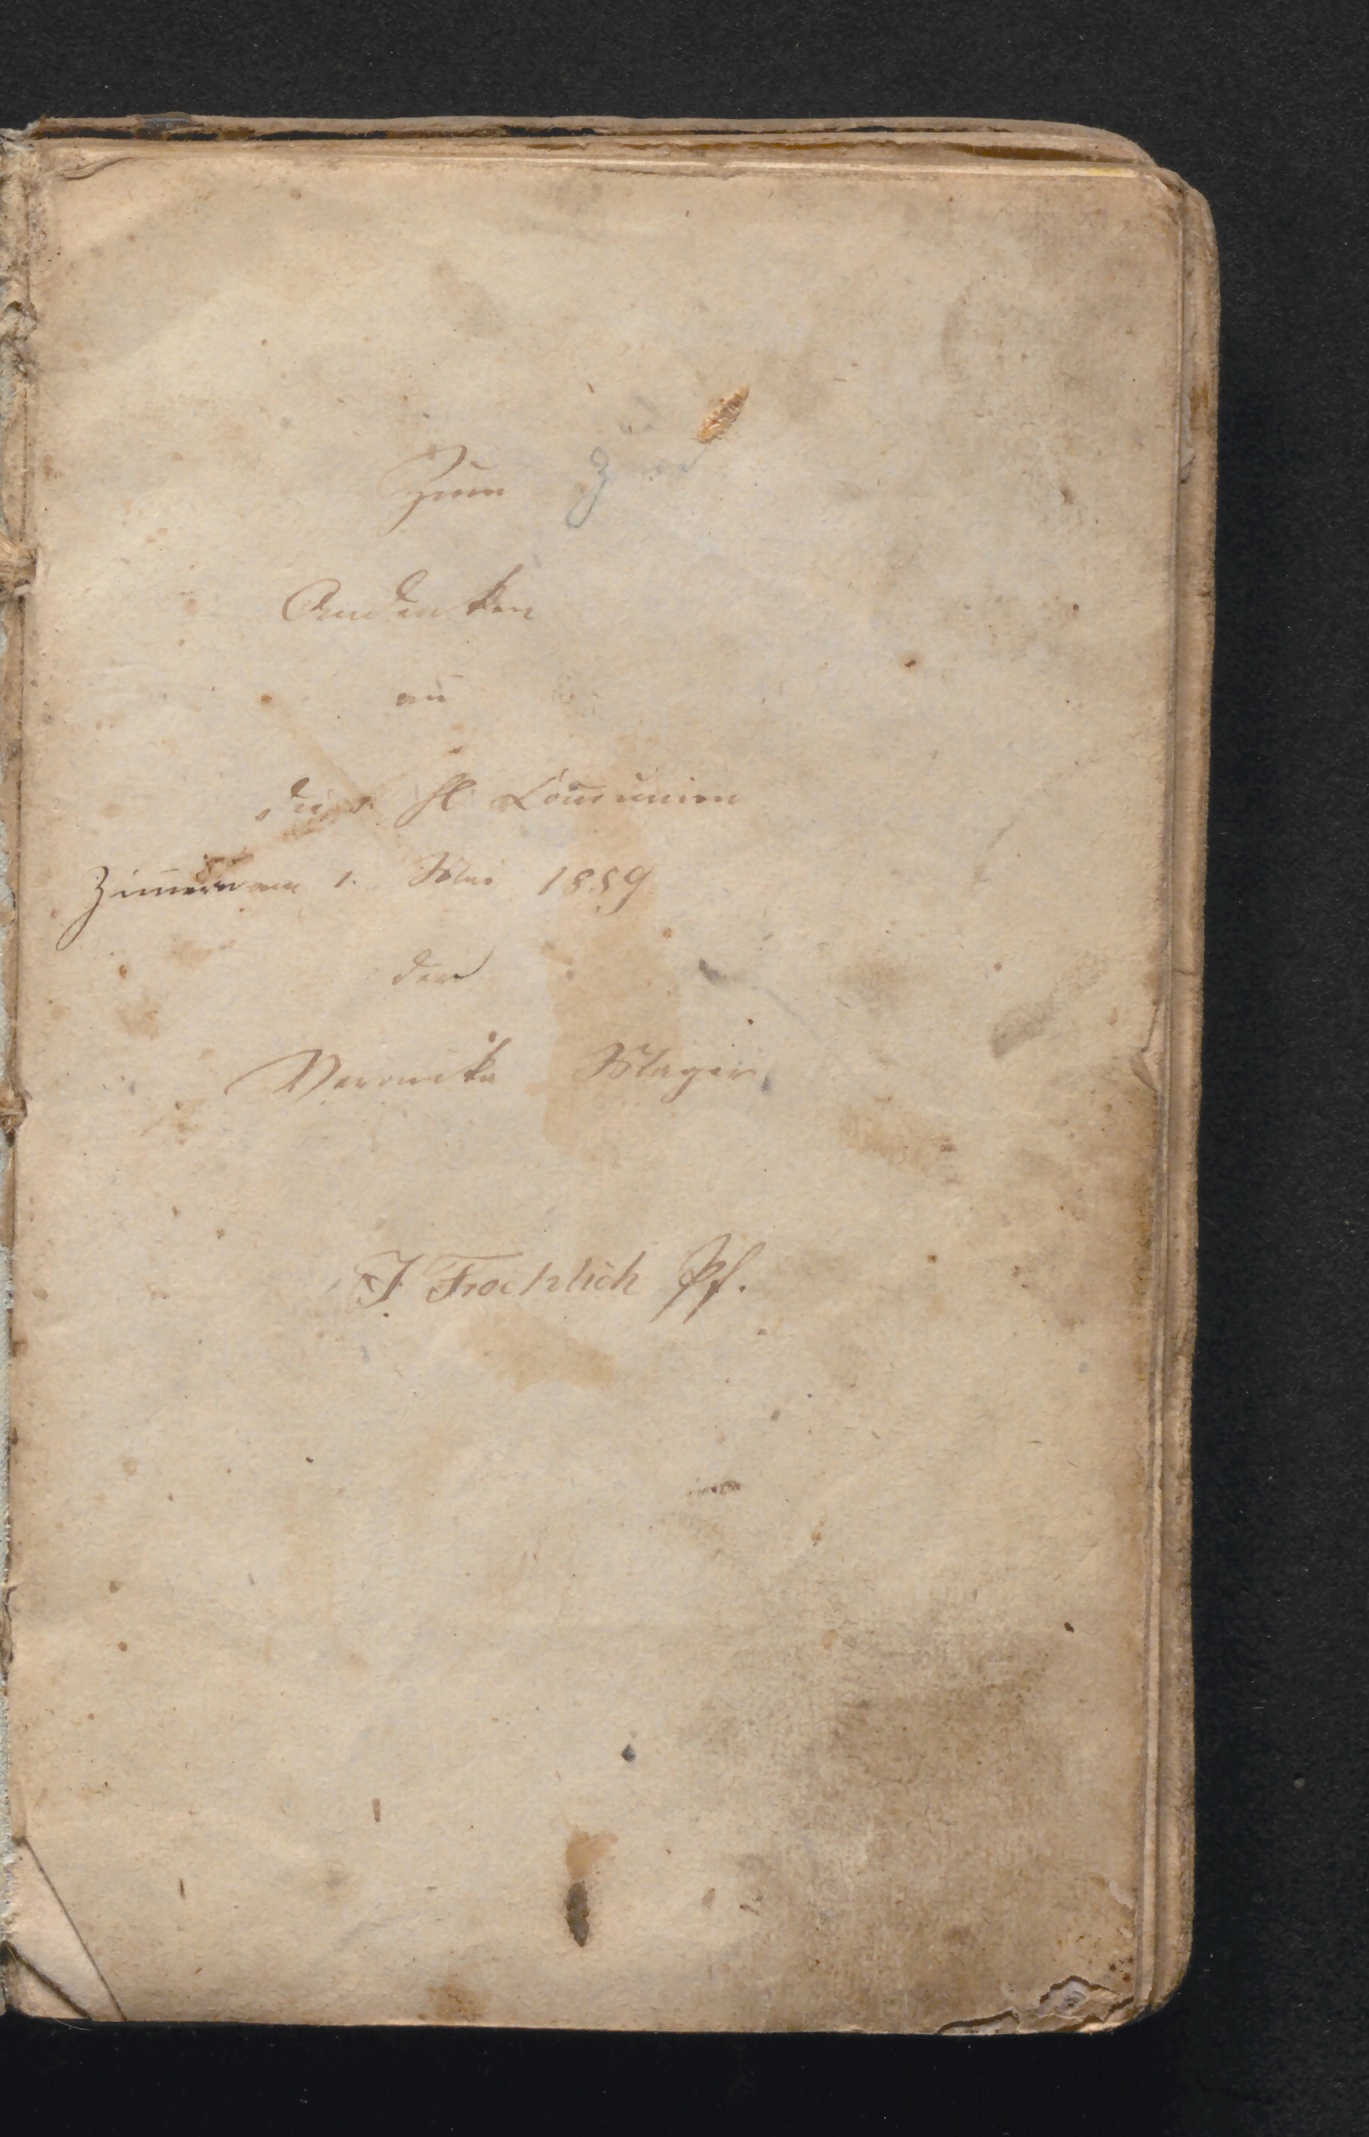 Zum
Andenken
an
die 1. hl Com̄union
Zim̄ern am 1. Mai 1859
der
Veronika Mager
J Froehlich Pf.